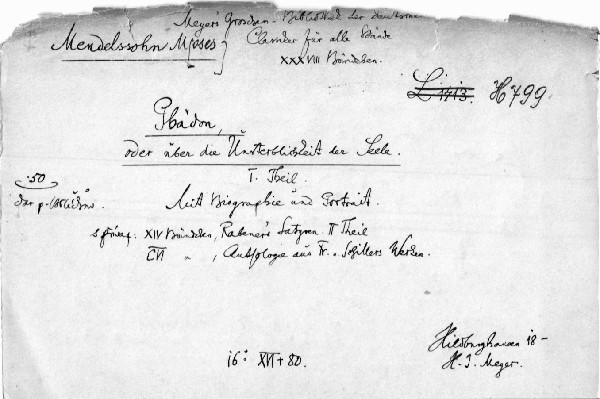 Meyer's Groschen-Bibliothek der deutschen
Mendelssohn Moses] Classiker für alle Stände
XXXVIII Bändchen.
L 1713. H 799.
Phädon,
oder über die Unsterblichkeit der Seele.
I. Theil.
·50
Mit Biographie und Portrait.
XIV Bändchen, Rabener's Satyren II Theil
CVI " , Anthologie aus Fr. v. Schillers Werken.
Hildburghausen 18–
H. J. Meyer.
16° XVI + 80.